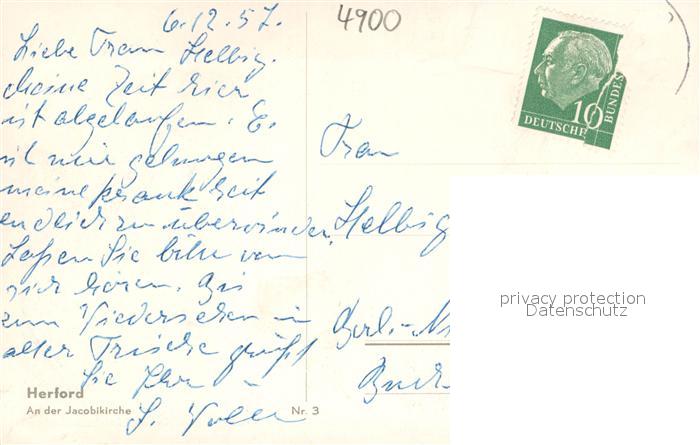 6.12.57.
4900
Liebe Frau Helbig.
Meine Zeit hier
ist abgelaufen. Es
ist mir gelungen
meine Krankheit
endlich zu überwinden.
Laßen Sie bitte von
sich hören. Bis
zum Wiedersehen in
alter Frische grüßt
Sie Ihr
Herford
An der Jacobikirche
Nr. 3
10
DEUTSCHE
BUNDES
Frau
Helbig
Berl.-
privacy protection
Datenschutz